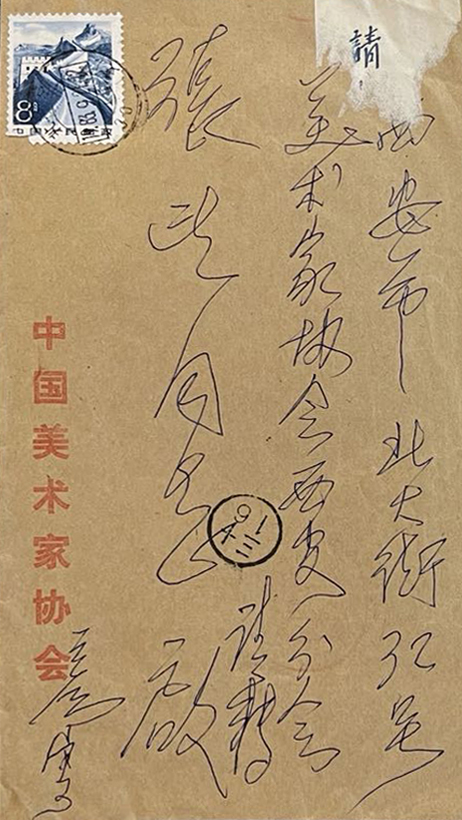 請
西安市北大街32号
美术家协会西安分会
请转
張同志启
中国美术家协会
8分
中国人民邮政